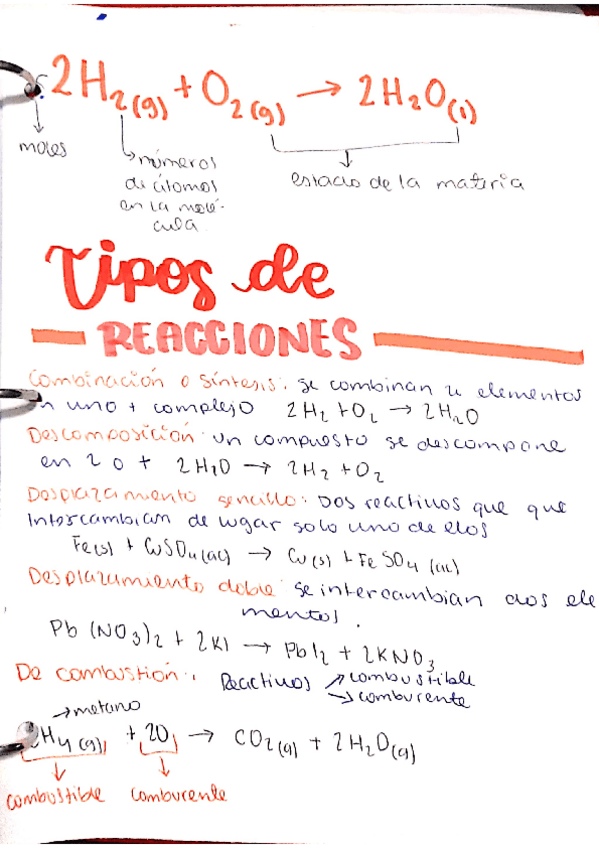 2H2(g) + O2(g) → 2H2O(l)
moles
números
de átomos
en la molé-
cula
estado de la materia
Tipos de
REACCIONES
Combinación o síntesis: se combinan 2 elementos
en uno + complejo 2H2 + O2 → 2H2O
Descomposición: un compuesto se descompone
en 2 o + 2H2O → 2H2 + O2
Desplazamiento sencillo: Dos reactivos que que
intercambian de lugar solo uno de ellos
Fe(s) + CuSO4(ac) → Cu(s) + FeSO4(ac)
Desplazamiento doble: se intercambian dos ele
mentos.
Pb(NO3)2 + 2KI → PbI2 + 2KNO3
De combustión: Reactivos → combustible
→ comburente
→ metano
H4(g) + 2O → CO2(g) + 2H2O(g)
combustible comburente